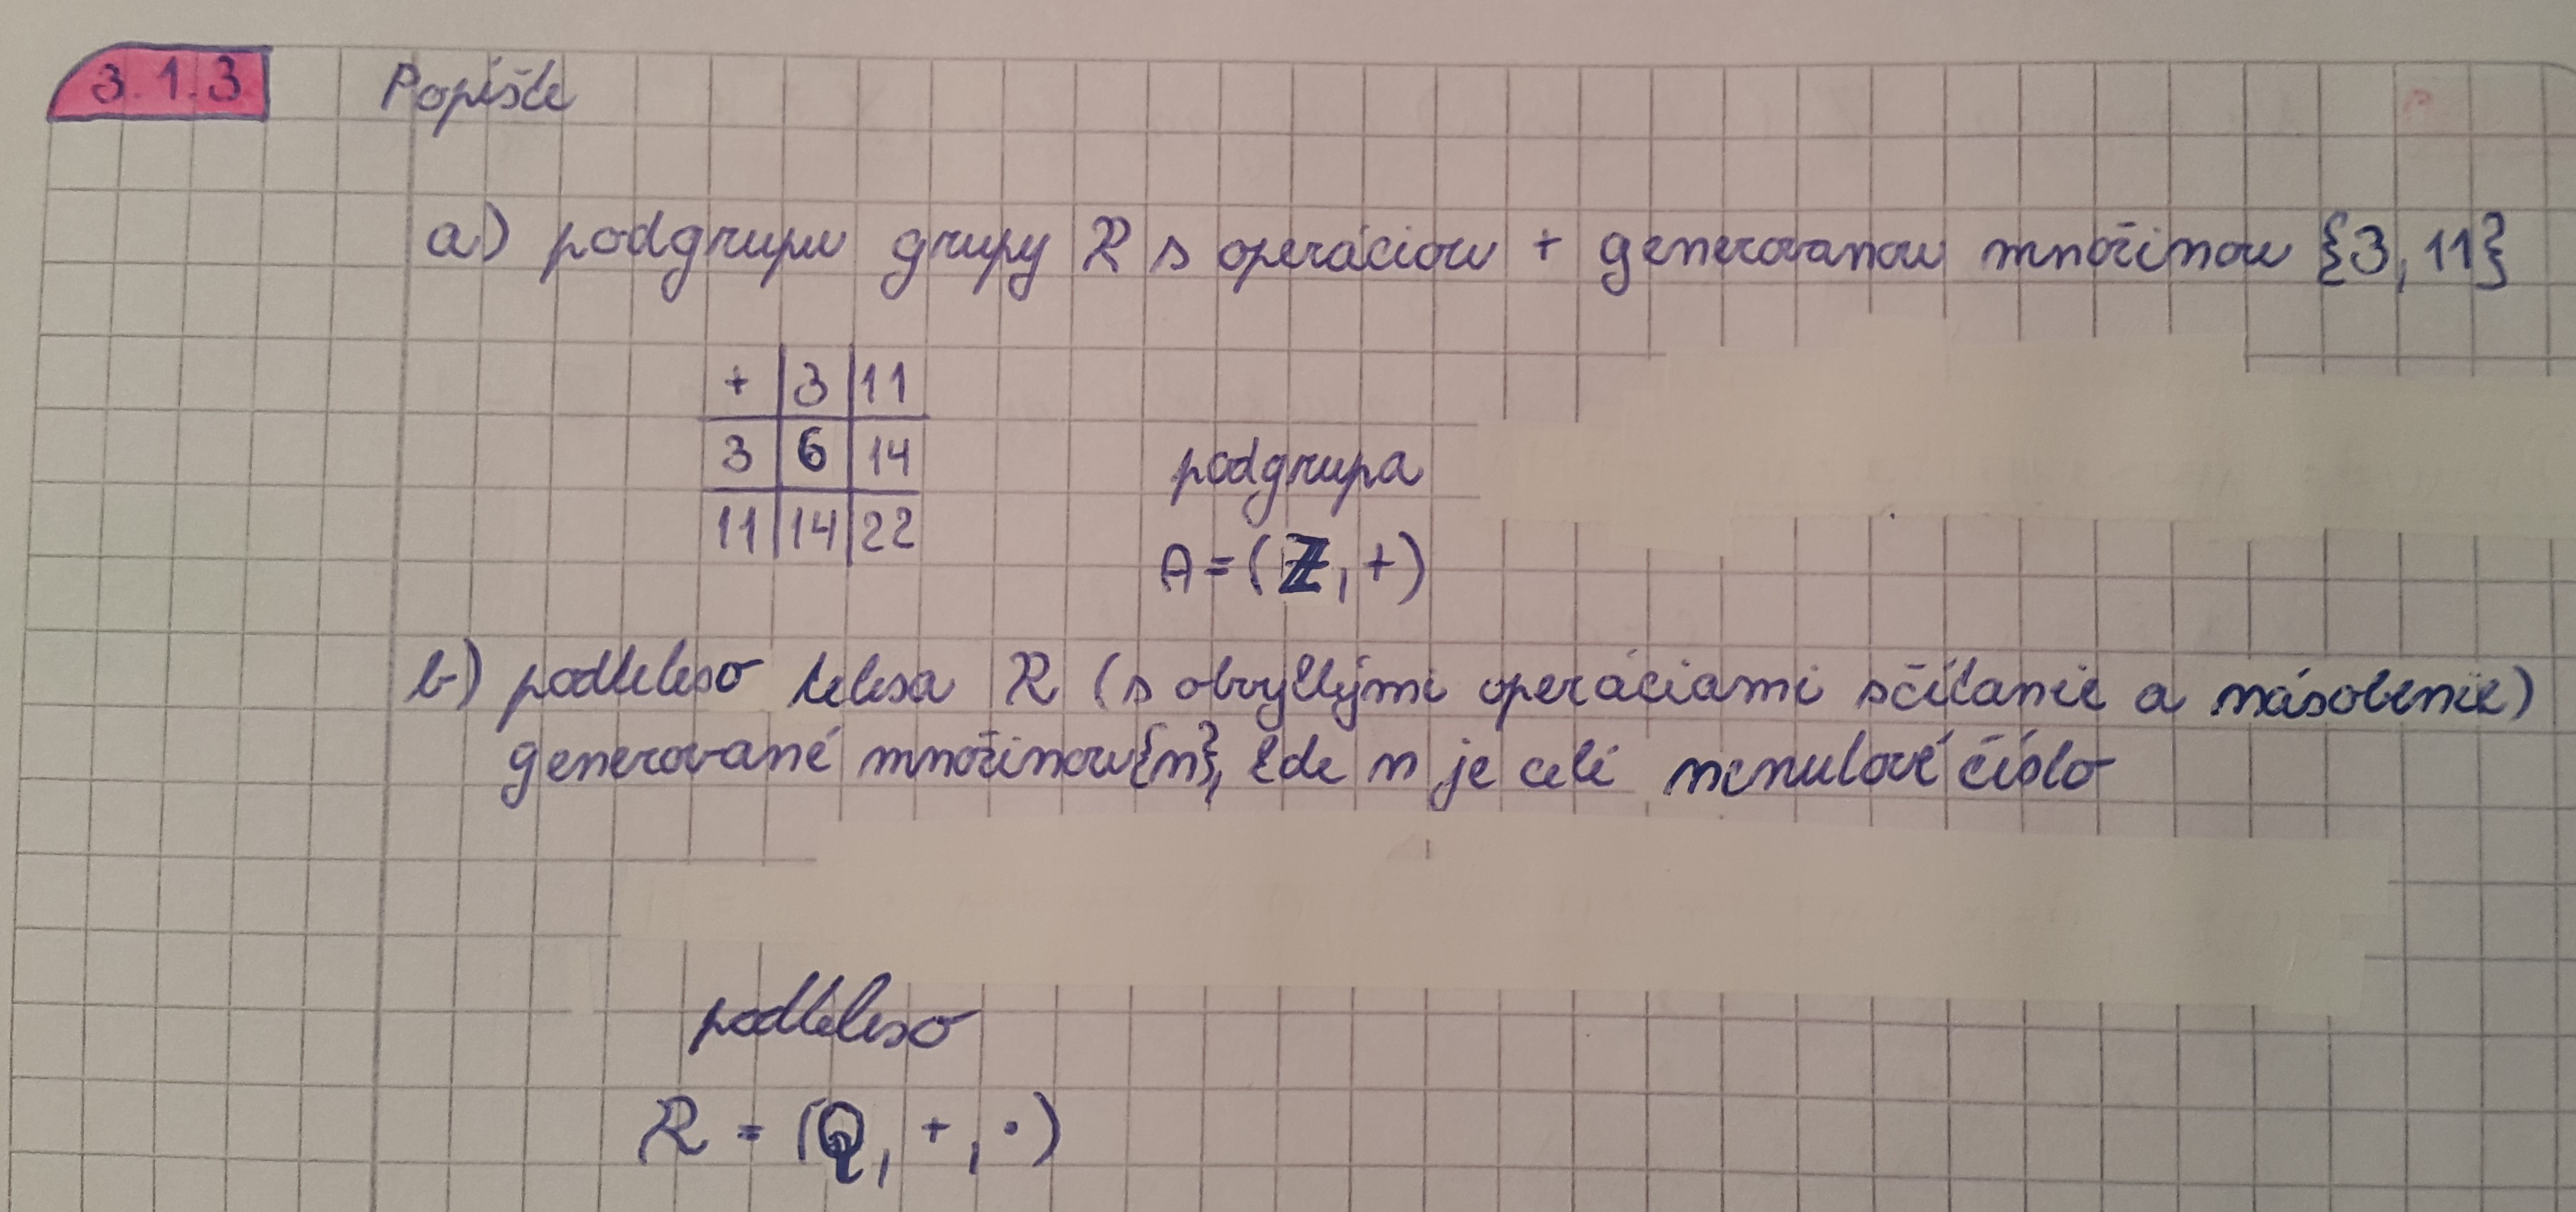 3.1.3 Popíšte
a) podgrupu grupy R s operáciou + generovanou množinou {3, 11}
+ 3 11
3 6 14
11 14 22
podgrupa
A = (ℤ, +)
b) podteleso telesa R (s obvyklými operáciami sčítanie a násobenie)
generované množinou {n}, kde n je celé nenulové číslo
podteleso
R = (Q, +, ·)